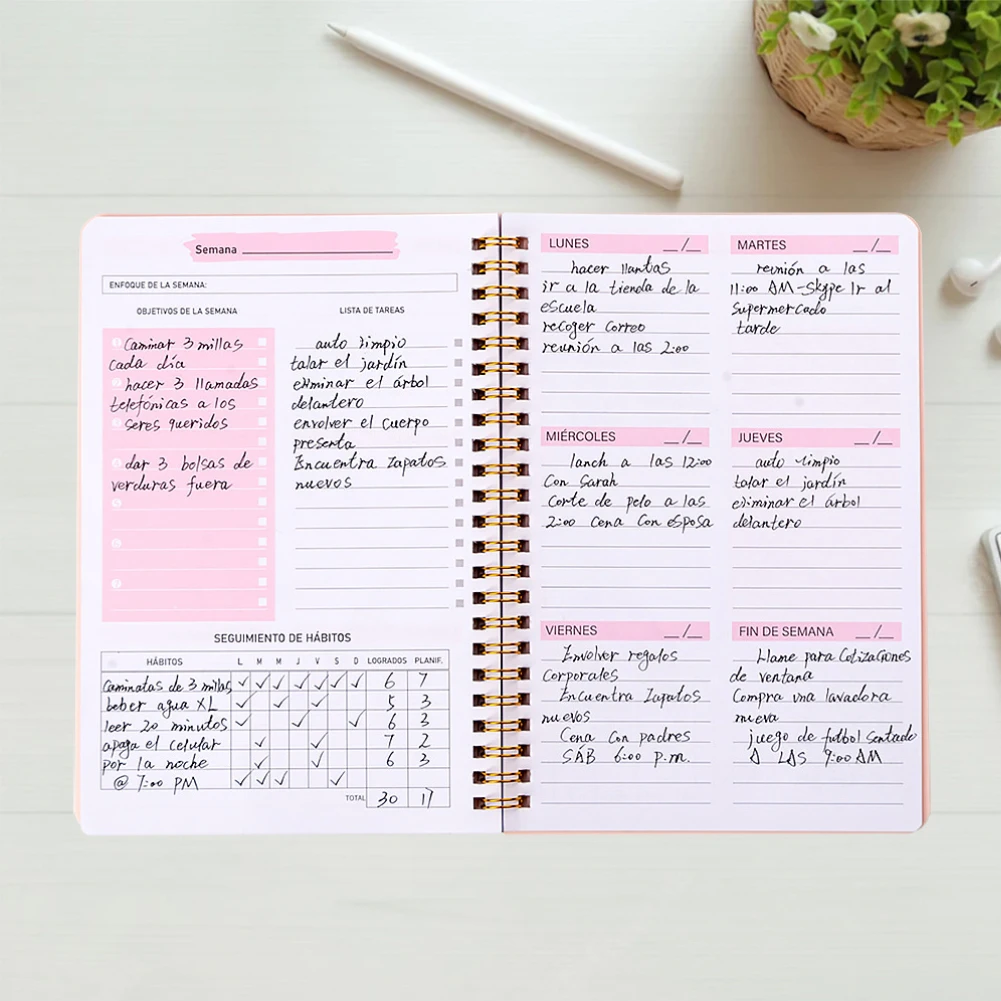 Semana
ENFOQUE DE LA SEMANA:
OBJETIVOS DE LA SEMANA
Caminar 3 millas
cada día
hacer 3 llamadas
telefónicas a los
seres queridos
dar 3 bolsas de
verduras fuera
LISTA DE TAREAS
auto limpio
talar el jardín
eliminar el árbol
delantero
envolver el cuerpo
presenta
Encuentra Zapatos
nuevos
SEGUIMIENTO DE HÁBITOS
HÁBITOS L M M J V S D LOGRADOS PLANIF.
Caminatas de 3 millas ✓ ✓ ✓ ✓ ✓ ✓ ✓ 6 7
beber agua XL ✓ ✓ ✓ 5 3
leer 20 minutos ✓ ✓ ✓ 6 3
apaga el celular ✓ ✓ 7 2
por la noche ✓ ✓ 6 3
@ 7:00 PM ✓ ✓ ✓ ✓
TOTAL 30 17
LUNES __/__
hacer llantas
ir a la tienda de la
escuela
recoger Correo
reunión a las 2:00
MARTES __/__
reunión a las
11:00 AM-Skype Ir al
Supermercado
tarde
MIÉRCOLES __/__
lanch a las 12:00
Con Sarah
Corte de pelo a las
2:00 Cena Con esposa
JUEVES __/__
auto limpio
talar el jardín
eliminar el árbol
delantero
VIERNES __/__
Envolver regalos
Corporales
Encuentra Zapatos
nuevos
Cena Con padres
SÁB 6:00 p.m.
FIN DE SEMANA __/__
Llame para Cotizaciones
de ventana
Compra una lavadora
nueva
juego de futbol Sentado
A LAS 9:00 AM